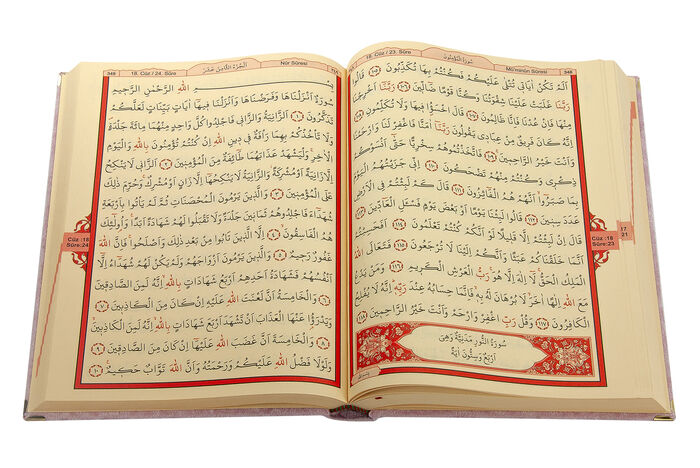 18. Cüz / 23. Sûre
سُورَةُ الْمُؤْمِنُونَ
Mü'minûn Sûresi
348
اَلَمْ تَكُنْ اٰيَاتِي تُتْلٰى عَلَيْكُمْ فَكُنْتُمْ بِهَا تُكَذِّبُونَ ﴿١٠٥﴾ قَالُوا
رَبَّنَا غَلَبَتْ عَلَيْنَا شِقْوَتُنَا وَكُنَّا قَوْمًا ضَٓالِّينَ ﴿١٠٦﴾ رَبَّنَٓا اَخْرِجْنَا
مِنْهَا فَاِنْ عُدْنَا فَاِنَّا ظَالِمُونَ ﴿١٠٧﴾ قَالَ اخْسَؤُا فِيهَا وَلَا تُكَلِّمُونِ ﴿١٠٨﴾
اِنَّهُ كَانَ فَرِيقٌ مِنْ عِبَادِي يَقُولُونَ رَبَّنَٓا اٰمَنَّا فَاغْفِرْ لَنَا وَارْحَمْنَا
وَاَنْتَ خَيْرُ الرَّاحِمِينَ ﴿١٠٩﴾ فَاتَّخَذْتُمُوهُمْ سِخْرِيًّا حَتّٰٓى اَنْسَوْكُمْ
ذِكْرِي وَكُنْتُمْ مِنْهُمْ تَضْحَكُونَ ﴿١١٠﴾ اِنِّي جَزَيْتُهُمُ الْيَوْمَ
بِمَا صَبَرُٓوا اَنَّهُمْ هُمُ الْفَٓائِزُونَ ﴿١١١﴾ قَالَ كَمْ لَبِثْتُمْ فِي الْاَرْضِ
عَدَدَ سِنِينَ ﴿١١٢﴾ قَالُوا لَبِثْنَا يَوْمًا اَوْ بَعْضَ يَوْمٍ فَسْـَٔلِ الْعَٓادِّينَ ﴿١١٣﴾
قَالَ اِنْ لَبِثْتُمْ اِلَّا قَلِيلًا لَوْ اَنَّكُمْ كُنْتُمْ تَعْلَمُونَ ﴿١١٤﴾ اَفَحَسِبْتُمْ
اَنَّمَا خَلَقْنَاكُمْ عَبَثًا وَاَنَّكُمْ اِلَيْنَا لَا تُرْجَعُونَ ﴿١١٥﴾ فَتَعَالَى اللّٰهُ
الْمَلِكُ الْحَقُّ لَٓا اِلٰهَ اِلَّا هُوَ رَبُّ الْعَرْشِ الْكَرِيمِ ﴿١١٦﴾ وَمَنْ يَدْعُ
مَعَ اللّٰهِ اِلٰهًا اٰخَرَ لَا بُرْهَانَ لَهُ بِهِ فَاِنَّمَا حِسَابُهُ عِنْدَ رَبِّهِ اِنَّهُ لَا يُفْلِحُ
الْكَافِرُونَ ﴿١١٧﴾ وَقُلْ رَبِّ اغْفِرْ وَارْحَمْ وَاَنْتَ خَيْرُ الرَّاحِمِينَ ﴿١١٨﴾
سُورَةُ النُّورِ مَدَنِيَّةٌ وَهِيَ
اَرْبَعٌ وَسِتُّونَ اٰيَةً
17
21
Cüz :18
Sûre:23
349
18. Cüz / 24. Sûre
اَلْجُزْءُ الثَّامِنُ عَشَرَ
Nûr Sûresi
بِسْمِ اللّٰهِ الرَّحْمٰنِ الرَّحِيمِ
سُورَةٌ اَنْزَلْنَاهَا وَفَرَضْنَاهَا وَاَنْزَلْنَا فِيهَٓا اٰيَاتٍ بَيِّنَاتٍ لَعَلَّكُمْ
تَذَكَّرُونَ ﴿١﴾ اَلزَّانِيَةُ وَالزَّانِي فَاجْلِدُوا كُلَّ وَاحِدٍ مِنْهُمَا مِائَةَ جَلْدَةٍ
وَلَا تَأْخُذْكُمْ بِهِمَا رَأْفَةٌ فِي دِينِ اللّٰهِ اِنْ كُنْتُمْ تُؤْمِنُونَ بِاللّٰهِ وَالْيَوْمِ
الْاٰخِرِ وَلْيَشْهَدْ عَذَابَهُمَا طَٓائِفَةٌ مِنَ الْمُؤْمِنِينَ ﴿٢﴾ اَلزَّانِي لَا يَنْكِحُ
اِلَّا زَانِيَةً اَوْ مُشْرِكَةً وَالزَّانِيَةُ لَا يَنْكِحُهَٓا اِلَّا زَانٍ اَوْ مُشْرِكٌ وَحُرِّمَ ذٰلِكَ
عَلَى الْمُؤْمِنِينَ ﴿٣﴾ وَالَّذِينَ يَرْمُونَ الْمُحْصَنَاتِ ثُمَّ لَمْ يَأْتُوا بِاَرْبَعَةِ
شُهَدَٓاءَ فَاجْلِدُوهُمْ ثَمَانِينَ جَلْدَةً وَلَا تَقْبَلُوا لَهُمْ شَهَادَةً اَبَدًا وَاُولٰٓئِكَ
هُمُ الْفَاسِقُونَ ﴿٤﴾ اِلَّا الَّذِينَ تَابُوا مِنْ بَعْدِ ذٰلِكَ وَاَصْلَحُوا فَاِنَّ اللّٰهَ
غَفُورٌ رَحِيمٌ ﴿٥﴾ وَالَّذِينَ يَرْمُونَ اَزْوَاجَهُمْ وَلَمْ يَكُنْ لَهُمْ شُهَدَٓاءُ اِلَّٓا
اَنْفُسُهُمْ فَشَهَادَةُ اَحَدِهِمْ اَرْبَعُ شَهَادَاتٍ بِاللّٰهِ اِنَّهُ لَمِنَ الصَّادِقِينَ
﴿٦﴾ وَالْخَامِسَةُ اَنَّ لَعْنَتَ اللّٰهِ عَلَيْهِ اِنْ كَانَ مِنَ الْكَاذِبِينَ ﴿٧﴾
وَيَدْرَؤُا عَنْهَا الْعَذَابَ اَنْ تَشْهَدَ اَرْبَعَ شَهَادَاتٍ بِاللّٰهِ اِنَّهُ لَمِنَ الْكَاذِبِينَ
﴿٨﴾ وَالْخَامِسَةَ اَنَّ غَضَبَ اللّٰهِ عَلَيْهَٓا اِنْ كَانَ مِنَ الصَّادِقِينَ ﴿٩﴾
وَلَوْلَا فَضْلُ اللّٰهِ عَلَيْكُمْ وَرَحْمَتُهُ وَاَنَّ اللّٰهَ تَوَّابٌ حَكِيمٌ ﴿١٠﴾
Cüz :18
Sûre:24